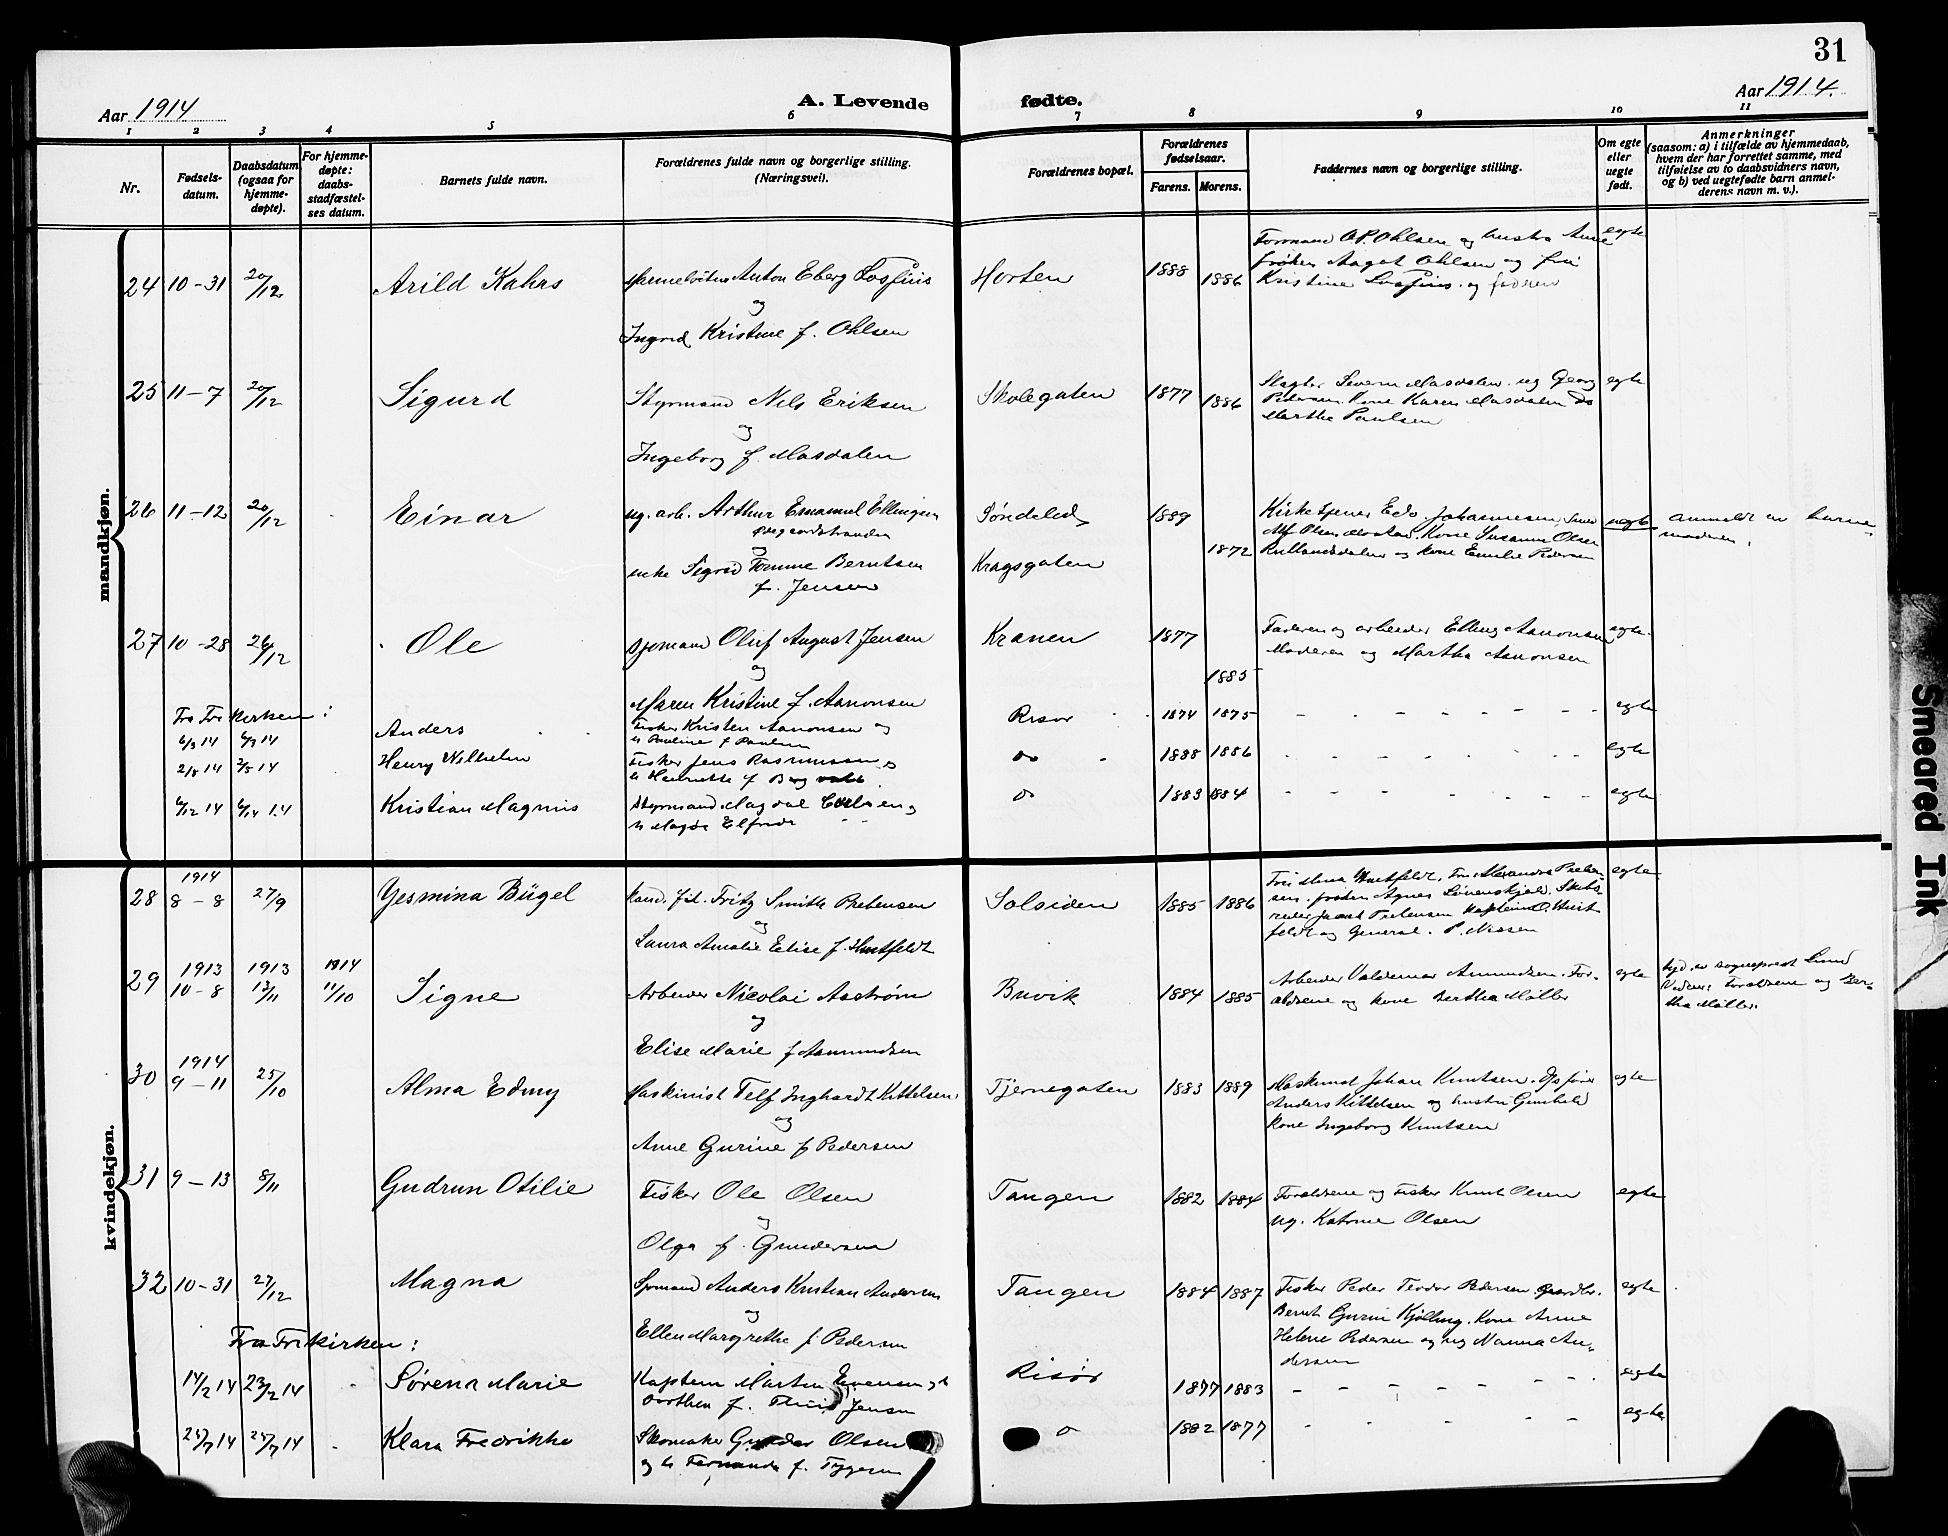 31
Aar 1914
A. Levende fødte.
Aar 1914.
1 2 3 4 5 6 7 8 9 10 11
Nr.
Fødsels-
datum.
Daabsdatum
(ogsaa for
hjemme-
døpte).
For hjemme-
døpte:
daabs-
stadfæstel-
ses datum.
Barnets fulde navn.
Forældrenes fulde navn og borgerlige stilling.
(Næringsvei).
Forældrenes bopæl.
Forældrenes
fødselsaar.
Farens. Morens.
Faddernes navn og borgerlige stilling.
Om egte
eller
uegte
født.
Anmerkninger
(saasom: a) i tilfælde av hjemmedaab,
hvem der har forrettet samme, med
tilføielse av to daabsvidners navn,
og b) ved uegtefødte barn anmel-
derens navn m. v.).
mandkjøn.
24 10-31 20/12 Arild Kahrs Anton Eberg Horten 1888 1886 egte
og
Ingrid Kristine f. Ohlsen
Ohlsen og hustru Anne
frøken Aagot Ohlsen og
Kristine og faderen
25 11-7 20/12 Sigurd Styrmand Nels Eriksen Skolegaten 1877 1886 egte
og
Ingeborg f. Masdalen
Severin Masdalen og Georg
Pedersen. Kone Karen Masdalen Do
Marthe Paulsen
26 11-12 20/12 Einar ug. arb. Arthur Emanuel Ellingsen Søndeled 1889 uegte anmeldt av barne-
moderen.
og
enke Sigrid Tomine Berntsen Kragsgaten 1872
f. Jensen
Kirketjener Edv. Johannesen,
Kone Susanne Olsen
og kone Emilie Pedersen
27 10-28 26/12 Ole Sjømand Oluf August Jensen Kranen 1877 1885 egte.
og
Maren Kristine f. Aanonsen
Faderen og arbeider Elling Aanonsen
Moderen og Martha Aanonsen
Fra Frikirken:
6/3 14 6/9 14 Anders Fisker Kristen Aanonsen og Risør 1874 1875 egte
h Pauline f Paulsen
2/5 14 2/5 14 Henry Wilhelm Fisker Jens Rasmussen og do 1888 1886 egte
h Henriette f
6/12 14 14 Kristian Magnus Styrmand do 1883 1884 egte
h Magda Elfrida
kvindekjøn.
28 1914 8-8 27/9 Yesmina Bügel Kand. fil. Fritz Smith Pretensen Solsiden 1885 1886 egte
og
Laura Amalie Elise f. Huitfeldt
Huitfeldt. Fru Alexandra
frøken Agnes
og General. P. Nissen
29 1913 10-8 1913 13/11 1914 11/10 Signe Arbeider Nicolai Aastrøm Buvik 1884 1885 egte
og
Elise Marie f Aanundsen
Arbeider Valdemar Amundsen. For-
ældrene og kone Bertha Møller
sogneprest Lund
Vidner: Forældrene og Ber-
tha Møller.
30 1914 9-11 25/10 Alma Edny Maskinist Telf Inghardt Kittelsen Tjernegaten 1883 1889 egte
og
Anne Gurine f Pedersen
Maskinist Johan Knutsen. Opsynsm
Anders Kittelsen og hustru Gunhild
kone Ingeborg Knutsen
31 9-13 8/11 Gudrun Otilie Fisker Ole Olsen Tangen 1882 1884 egte
og
Olga f. Gundersen
Forældrene og Fisker Knut Olsen
ug. Katrine Olsen
32 10-31 27/12 Magna Sjømand Anders Kristian Andersen Tangen 1884 1887 egte
og
Ellen Margrethe f Pedersen
Fisker Peder Teodor Pedersen
Bernt Kjølling. Kone Anne
Helene Pedersen og ug Nanna An-
dersen
Fra Frikirken:
14/2 14 23/2 14 Sørena Marie Kaptein Martin Evensen Risør 1877 1883 egte
f. Jensen
25/7 14 25/7 14 Klara Fredrikke Skomaker Gunder Olsen 1882 1877 egte
og h Fernanda f.
Smeared Ink